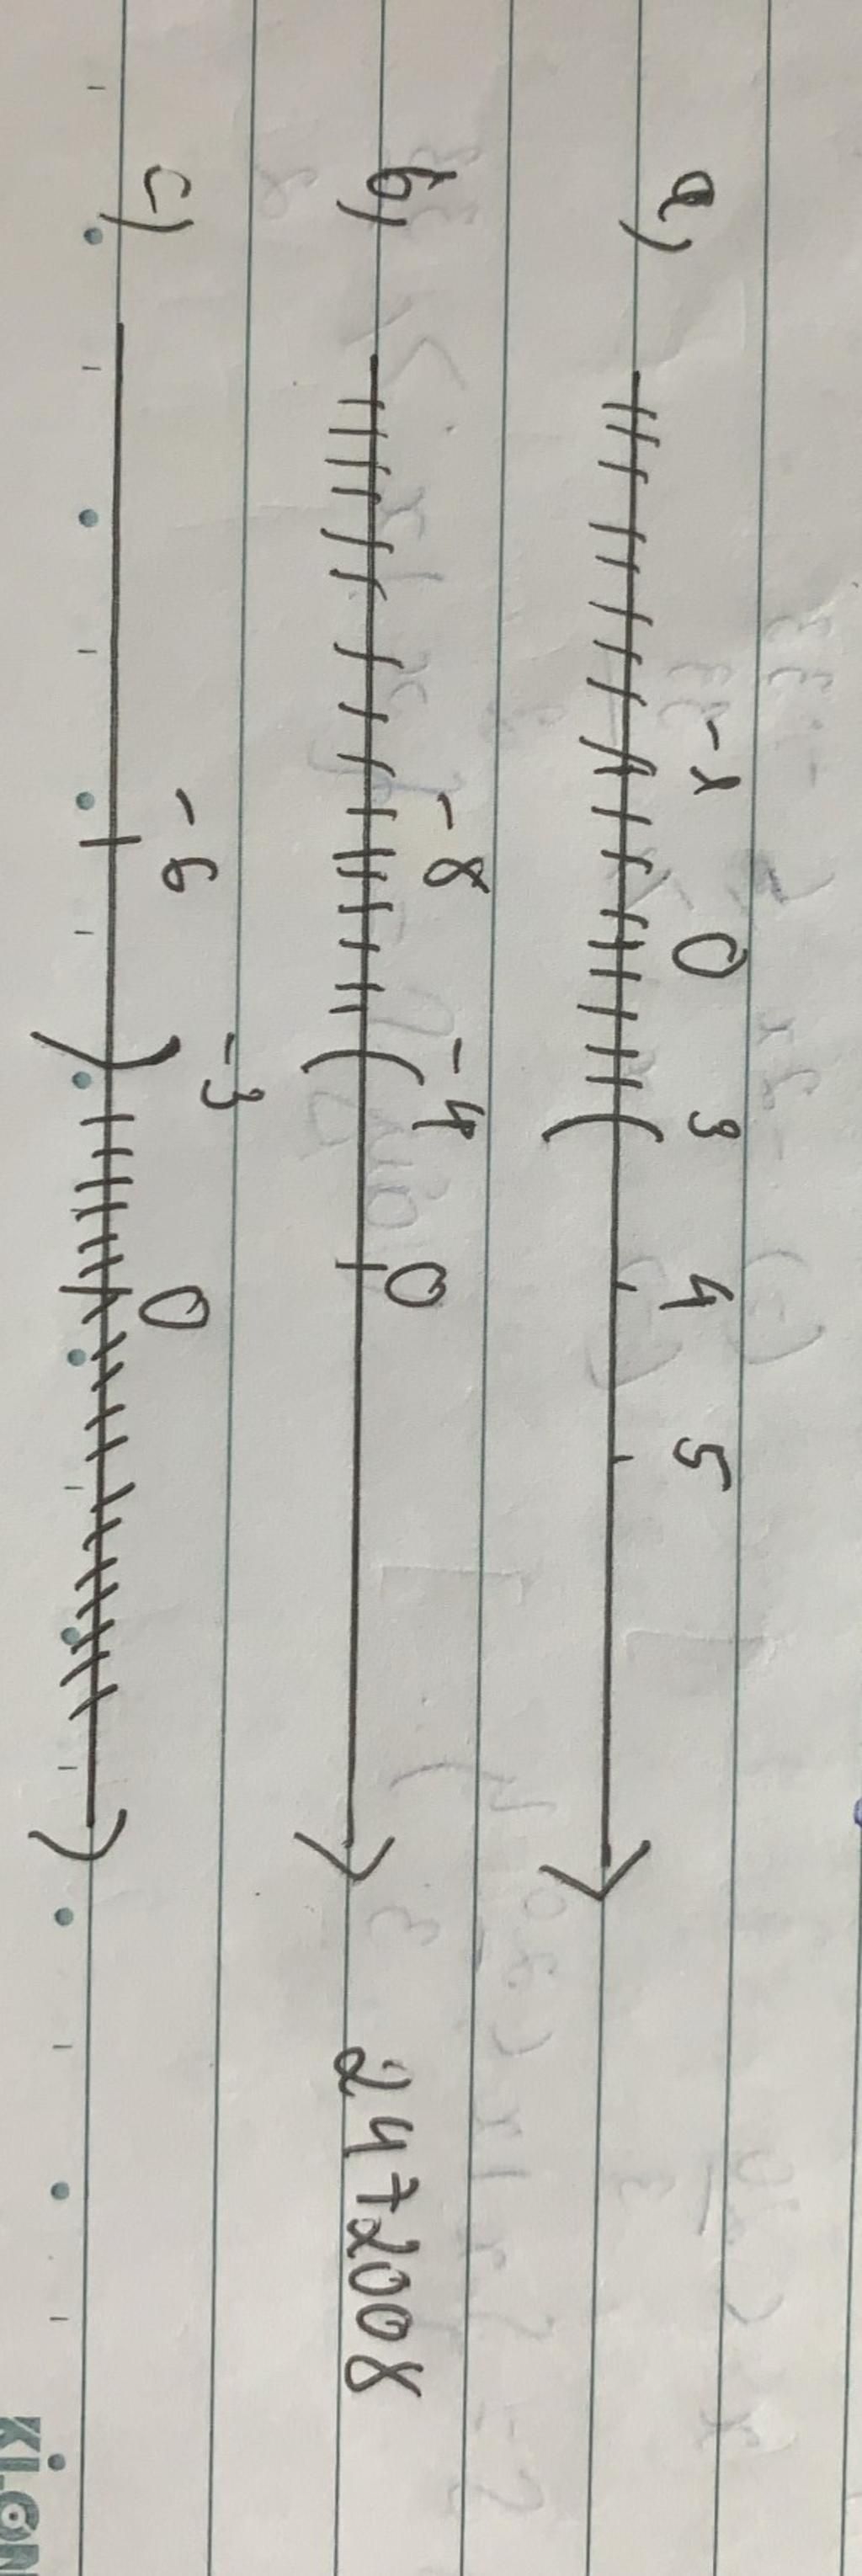 a) -1 0 3 4 5
b) -8 -4 0 2472008
c) -6 -3 0
KLON